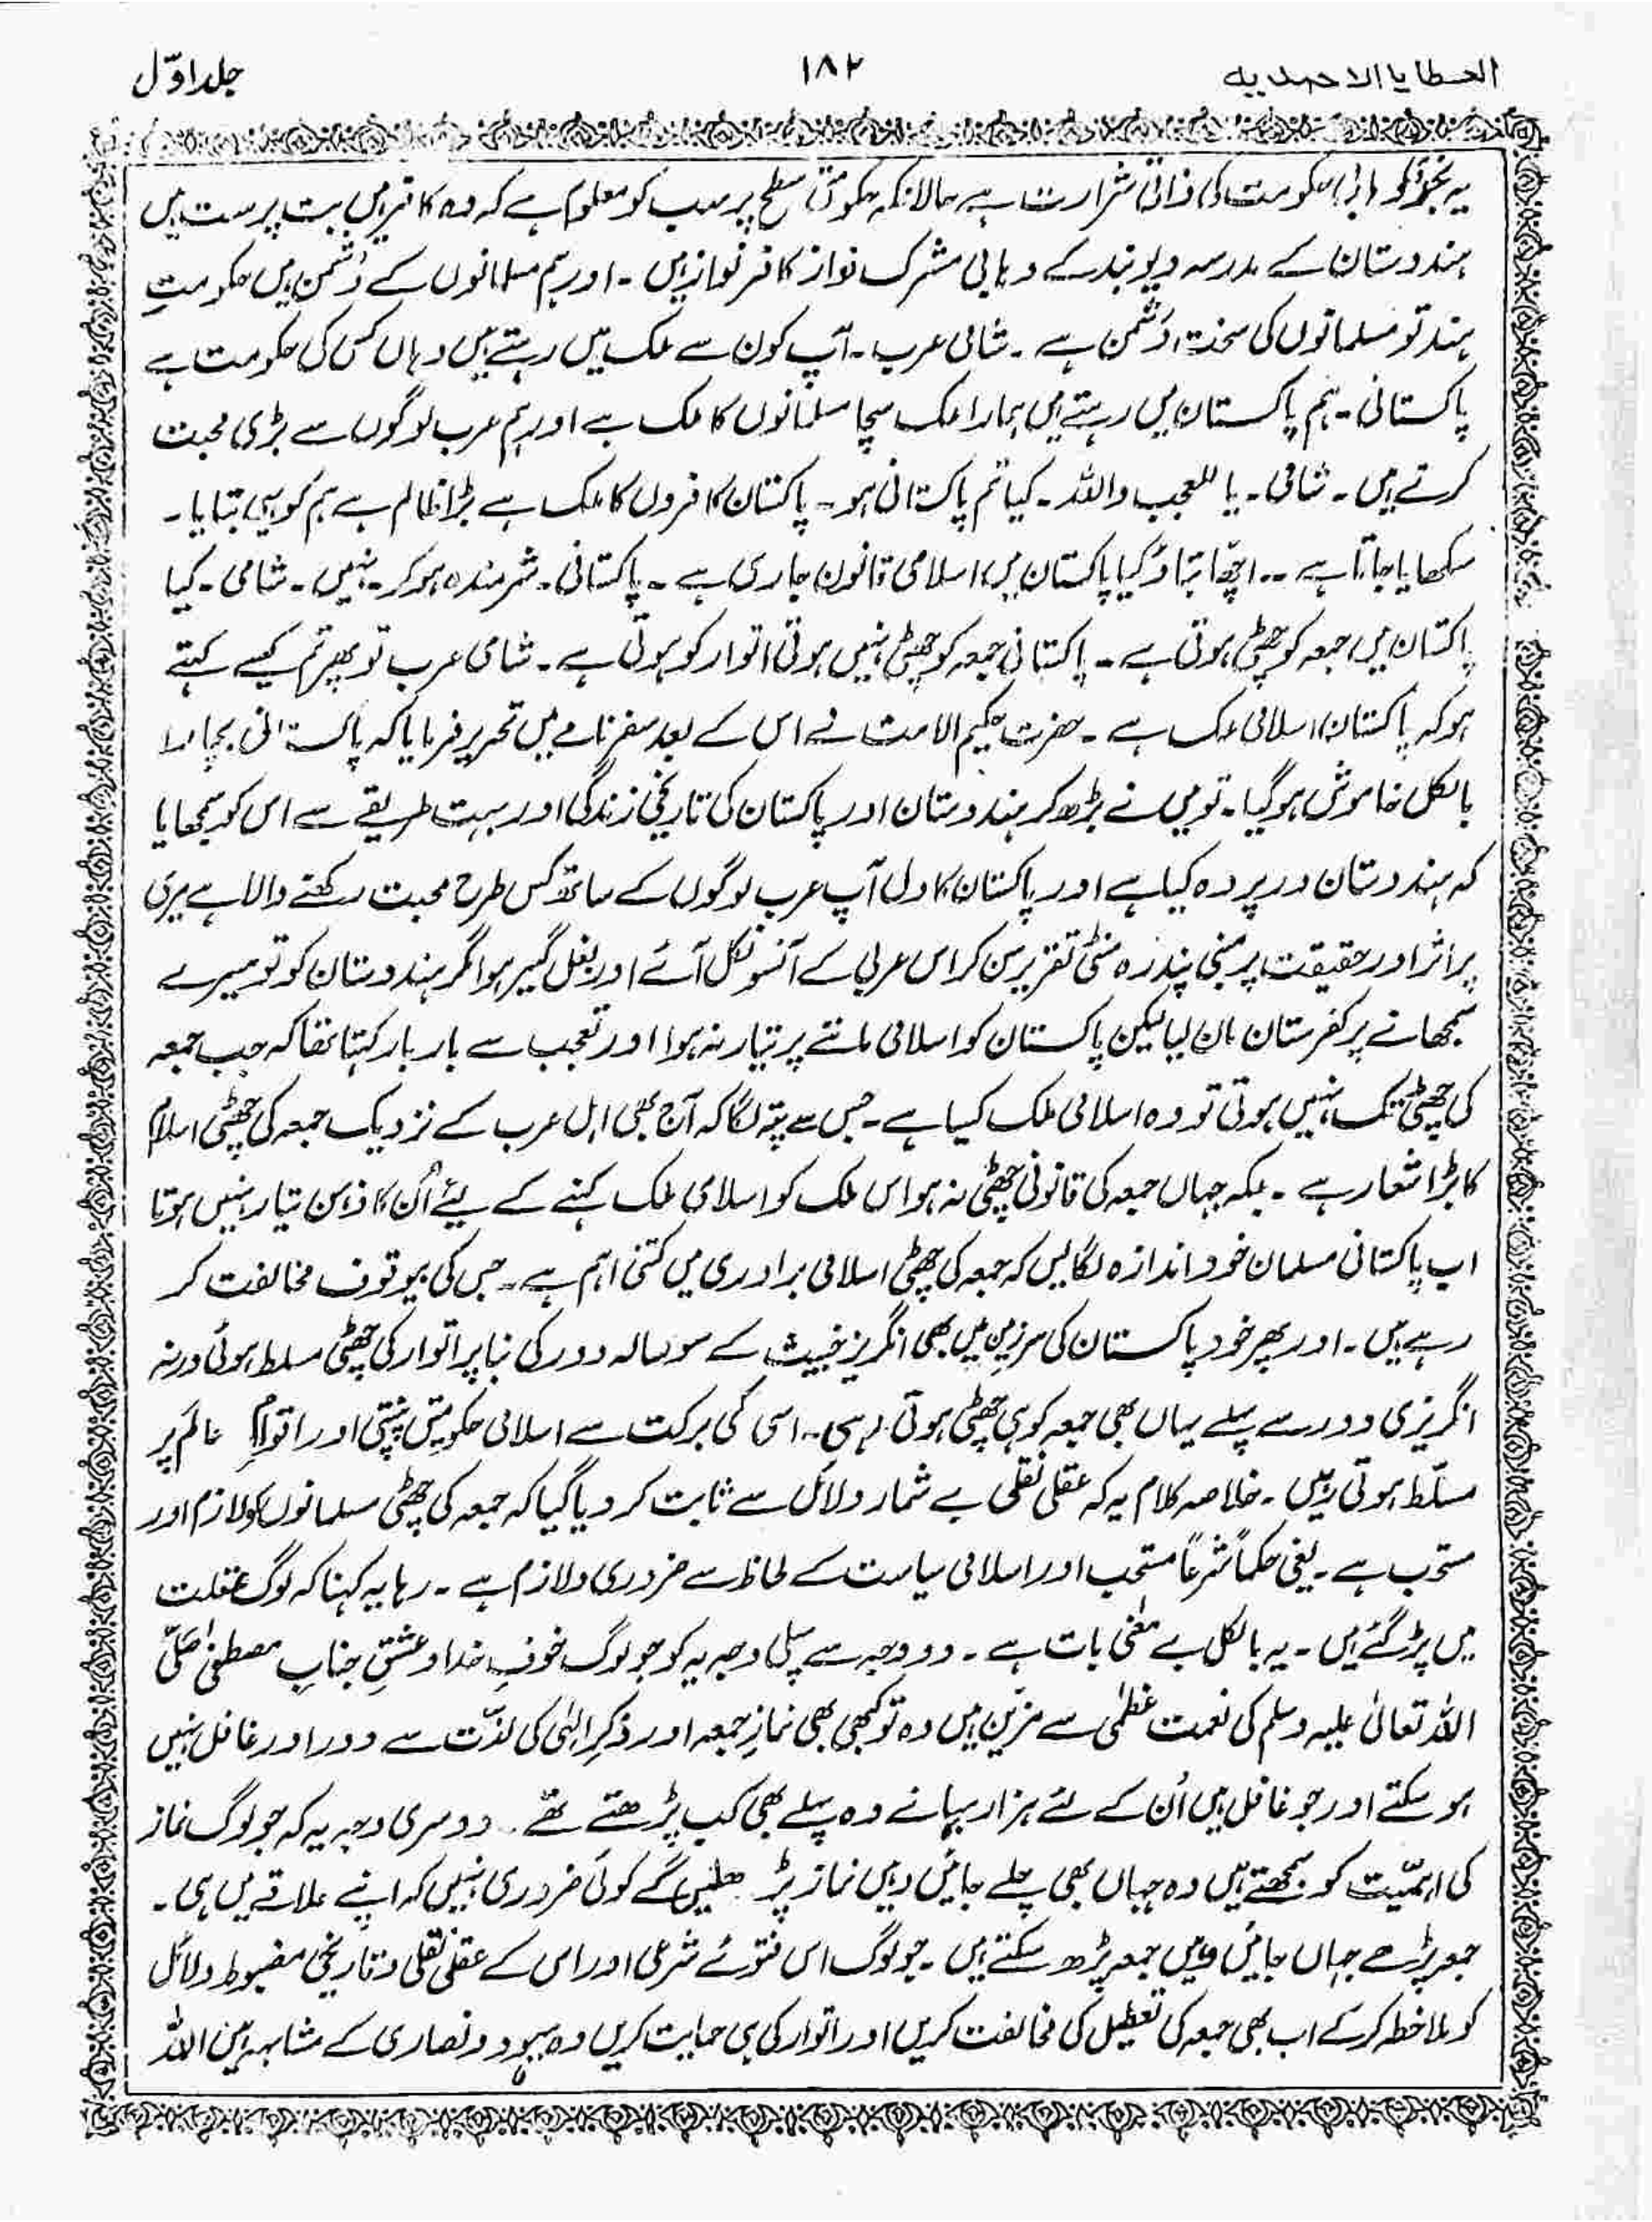 العطایا الاحمدیہ ۱۸۲ جلد اوّل
یہ نجد کو وہابی حکومت کی ذاتی شرارت ہے حالانکہ حکومتی سطح پر سب کو معلوم ہے کہ وہ کافر ہیں بت پرست ہیں
ہندوستان کے مدرسہ دیوبند کے وہابی مشرک نواز کافر نواز ہیں ۔ اور ہم مسلمانوں کے دُشمن ہیں حکومتِ
ہند تو مسلمانوں کی سخت دُشمن ہے ۔ شامی عرب ۔ آپ کون سے ملک میں رہتے ہیں وہاں کس کی حکومت ہے
پاکستانی ۔ ہم پاکستان میں رہتے ہیں ہمارا ملک سچا مسلمانوں کا ملک ہے اور ہم عرب لوگوں سے بڑی محبت
کرتے ہیں ۔ شامی ۔ یا للعجب واللہ ۔ کیا تم پاکستانی ہو ۔ پاکستان کافروں کا ملک ہے بڑا ظالم ہے ہم کو یہی بتایا ۔
سکھایا جاتا ہے ۔۔ اچھا بتاؤ کیا پاکستان میں اسلامی قانون جاری ہے ۔ پاکستانی ۔ شرمندہ ہو کر ۔ نہیں ۔ شامی ۔ کیا
پاکستان میں جمعہ کو چھٹی ہوتی ہے ۔ پاکستانی جمعہ کو چھٹی نہیں ہوتی اتوار کو ہوتی ہے ۔ شامی عرب تو پھر تم کیسے کہتے
ہو کہ پاکستان اسلامی ملک ہے ۔ حضرت حکیم الامت نے اس کے بعد سفر نامے میں تحریر فرمایا کہ پاکستانی بیچارا
بالکل خاموش ہو گیا ۔ تو میں نے بڑھ کر ہندوستان اور پاکستان کی تاریخی زندگی اور بہت طریقے سے اس کو سمجھایا
کہ ہندوستان در پردہ کیا ہے اور پاکستان کا دل آپ عرب لوگوں کے ساتھ کس طرح محبت رکھنے والا ہے میری
پر اثر اور حقیقت پر مبنی پندرہ منٹی تقریر سن کر اس عربی کے آنسو نکل آئے اور بغل گیر ہوا مگر ہندوستان کو تو میرے
سمجھانے پر کفرستان مان لیا لیکن پاکستان کو اسلامی ماننے پر تیار نہ ہوا اور تعجب سے بار بار کہتا تھا کہ جب جمعہ
کی چھٹی تک نہیں ہوتی تو وہ اسلامی ملک کیسا ہے ۔ جس سے پتہ لگا کہ آج بھی اہل عرب کے نزدیک جمعہ کی چھٹی اسلام
کا بڑا شعار ہے ۔ بلکہ جہاں جمعہ کی قانونی چھٹی نہ ہو اس ملک کو اسلامی ملک کہنے کے لیئے اُن کا ذہن تیار نہیں ہوتا
اب پاکستانی مسلمان خود اندازہ لگا لیں کہ جمعہ کی چھٹی اسلامی برادری میں کتنی اہم ہے ۔ جس کی بیوقوف مخالفت کر
رہے ہیں ۔ اور پھر خود پاکستان کی سرزمین میں بھی انگریز خبیث کے سو سالہ دور کی بنا پر اتوار کی چھٹی مسلط ہوئی ورنہ
انگریزی دور سے پہلے یہاں بھی جمعہ کو ہی چھٹی ہوتی رہی ۔ اسی کی برکت سے اسلامی حکومتیں پنپتی اور اقوامِ عالَم پر
مسلّط ہوتی رہیں ۔ خلاصہ کلام یہ کہ عقلی نقلی بے شمار دلائل سے ثابت کر دیا گیا کہ جمعہ کی چھٹی مسلمانوں کو لازم اور
مستحب ہے ۔ یعنی حکماً شرعاً مستحب اور اسلامی سیاست کے لحاظ سے ضروری ولازم ہے ۔ رہا یہ کہنا کہ لوگ غفلت
میں پڑ گئے ہیں ۔ یہ بالکل بے معنٰی بات ہے ۔ دو وجہ سے پہلی وجہ یہ کو جو لوگ خوفِ خدا و عشقِ جنابِ مصطفیٰ صلّی
اللہ تعالیٰ علیہ وسلم کی نعمت عظمٰی سے مزّین ہیں وہ تو کبھی بھی نمازِ جمعہ اور ذکرِ الہٰی کی لذّت سے دور اور غافل نہیں
ہو سکتے اور جو غافل ہیں اُن کے لئے ہزار بہانے وہ پہلے بھی کب پڑھتے تھے ۔ دوسری وجہ یہ کہ جو لوگ نماز
کی اہمّیت کو سمجھتے ہیں وہ جہاں بھی چلے جائیں وہیں نماز پڑھ لیں گے کوئی ضروری نہیں کہ اپنے علاقے میں ہی ۔
جمعہ پڑھے جہاں جائیں وہیں جمعہ پڑھ سکتے ہیں ۔ جو لوگ اس فتوےٰ شرعی اور اس کے عقلی نقلی و تاریخی مضبوط دلائل
کو ملاحظہ کر کے اب بھی جمعہ کی تعطیل کی مخالفت کریں اور اتوار کی ہی حمایت کریں وہ یہود و نصاریٰ کے مشابہ ہیں اللہ